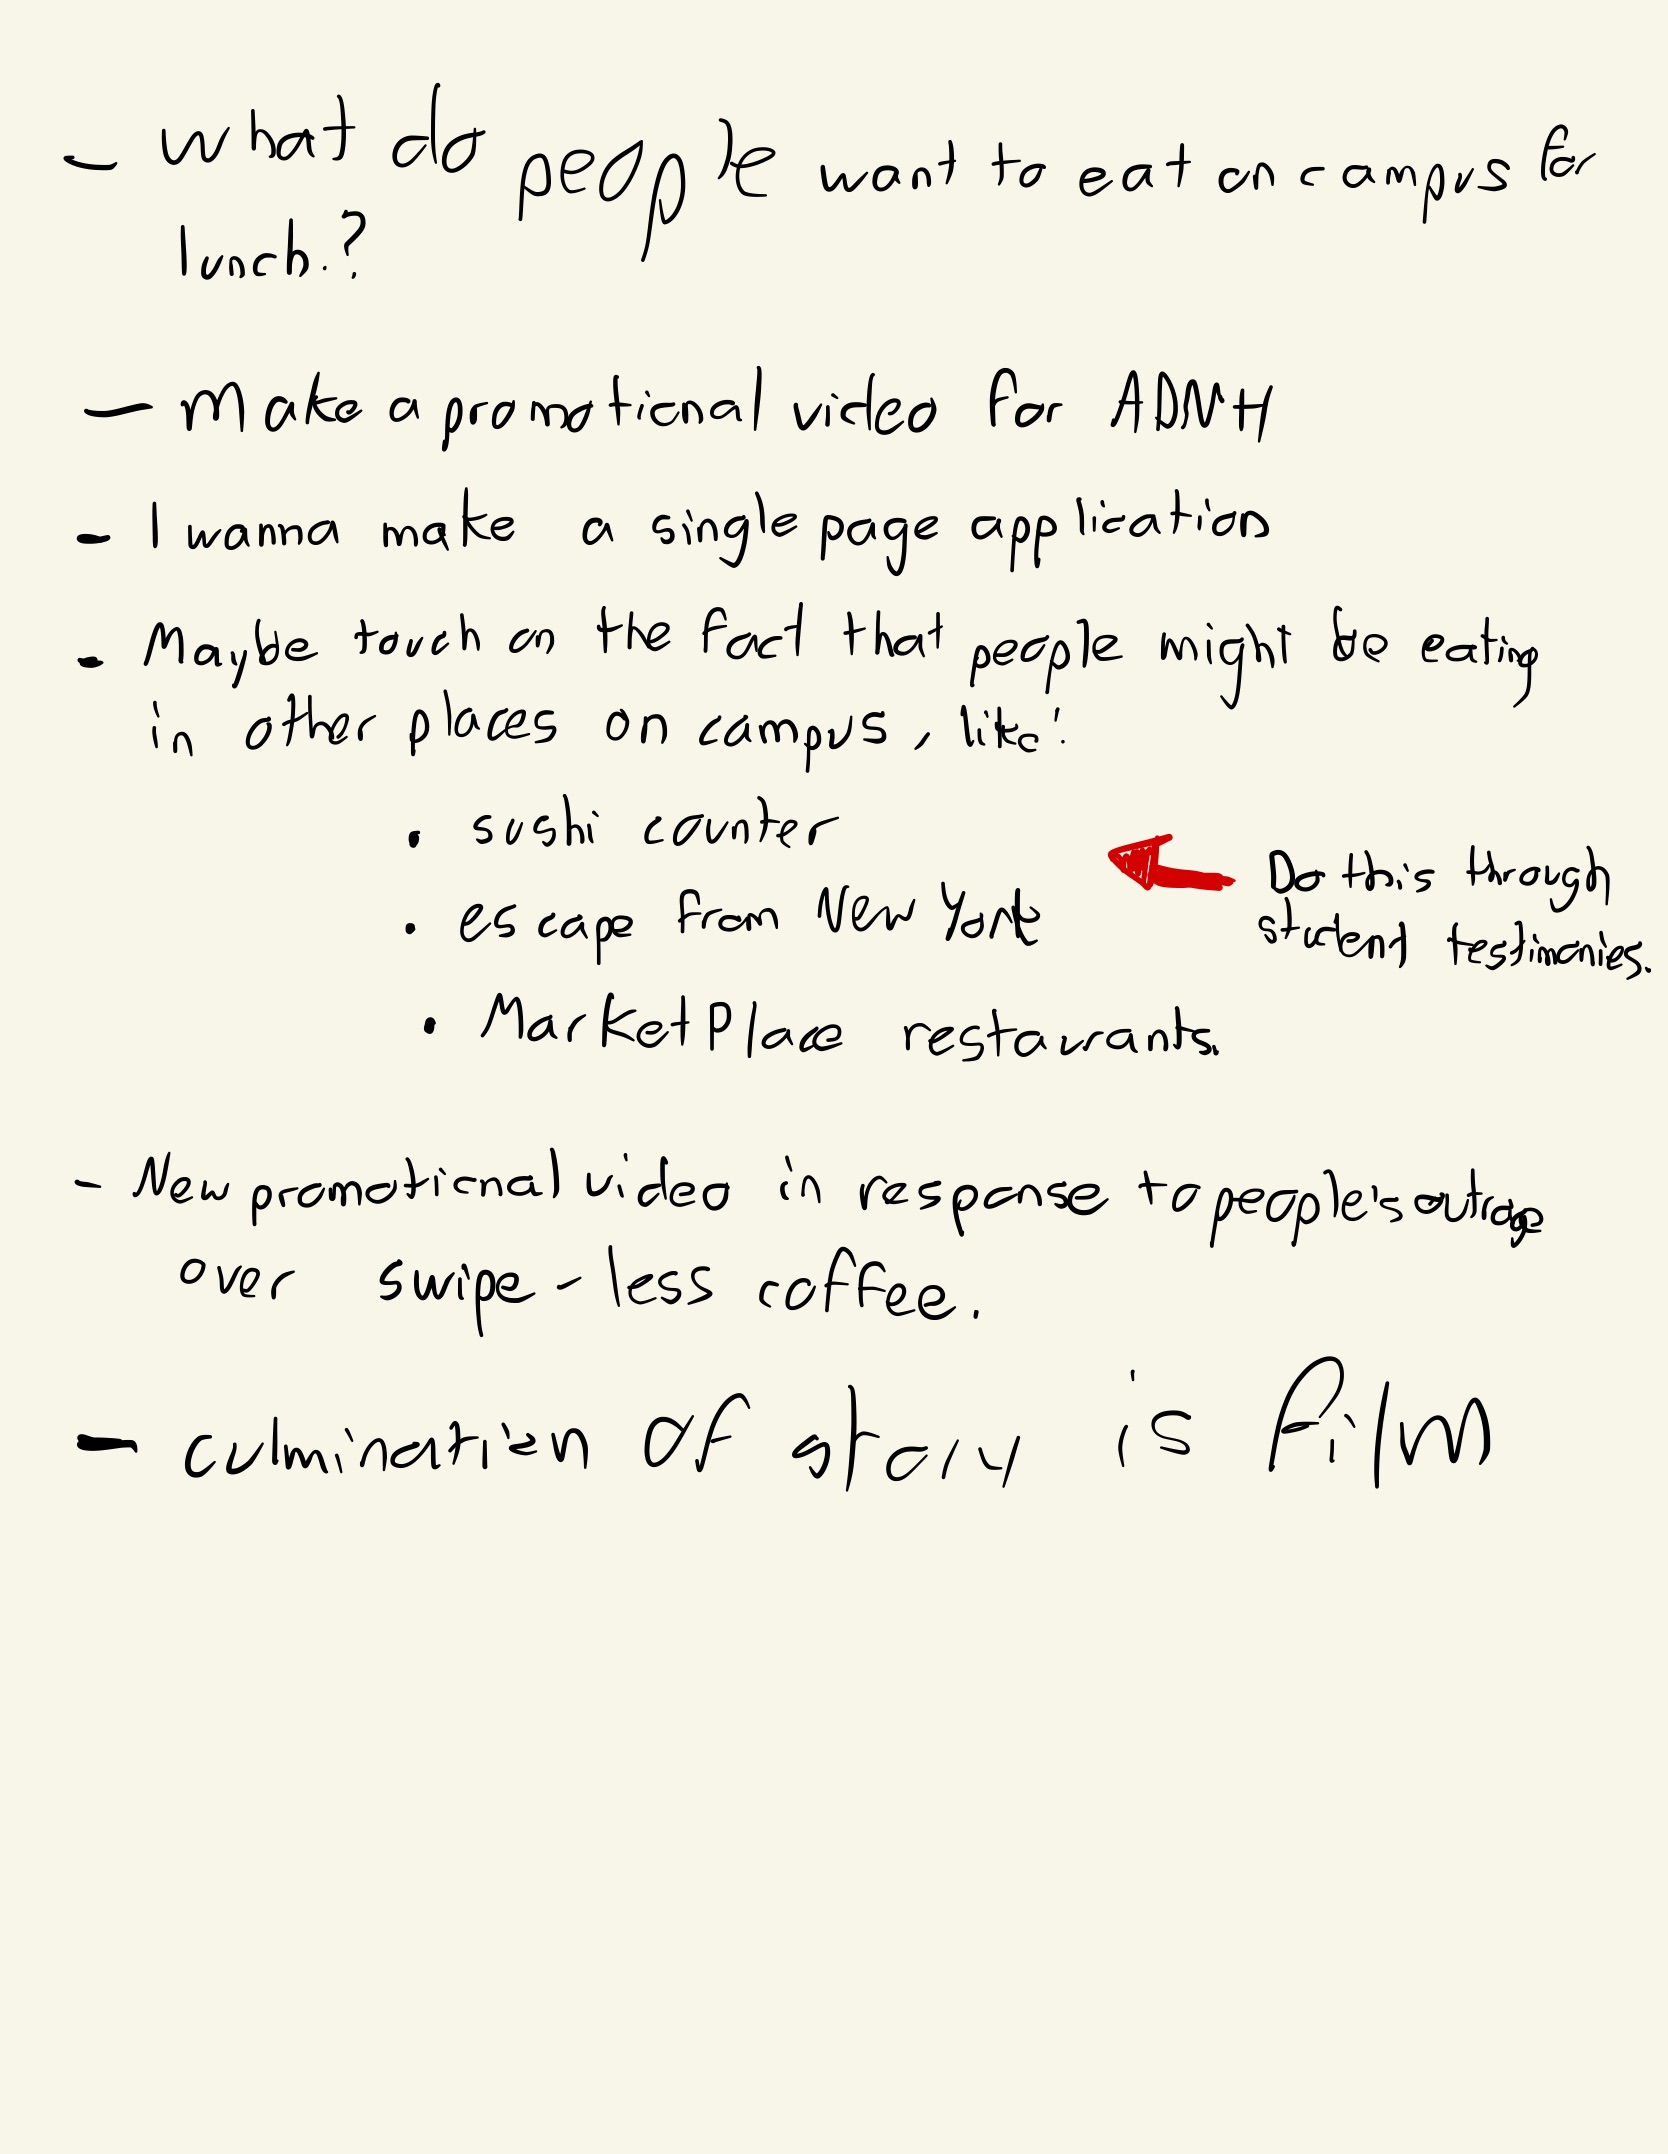 - What do people want to eat on campus for
lunch.?
- Make a promotional video for ADNH
- I wanna make a single page application
- Maybe touch on the fact that people might be eating
in other places on campus, like:
• sushi counter
• escape from New York
• MarketPlace restaurants.
Do this through
student testimonies.
- New promotional video in response to people's outrage
over swipe-less coffee.
- culmination of story is film